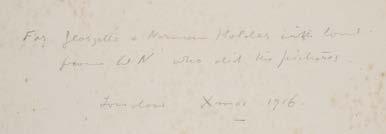 For Georgette & Norman Holder with love
from W.N. who did the pictures.
London Xmas 1916.